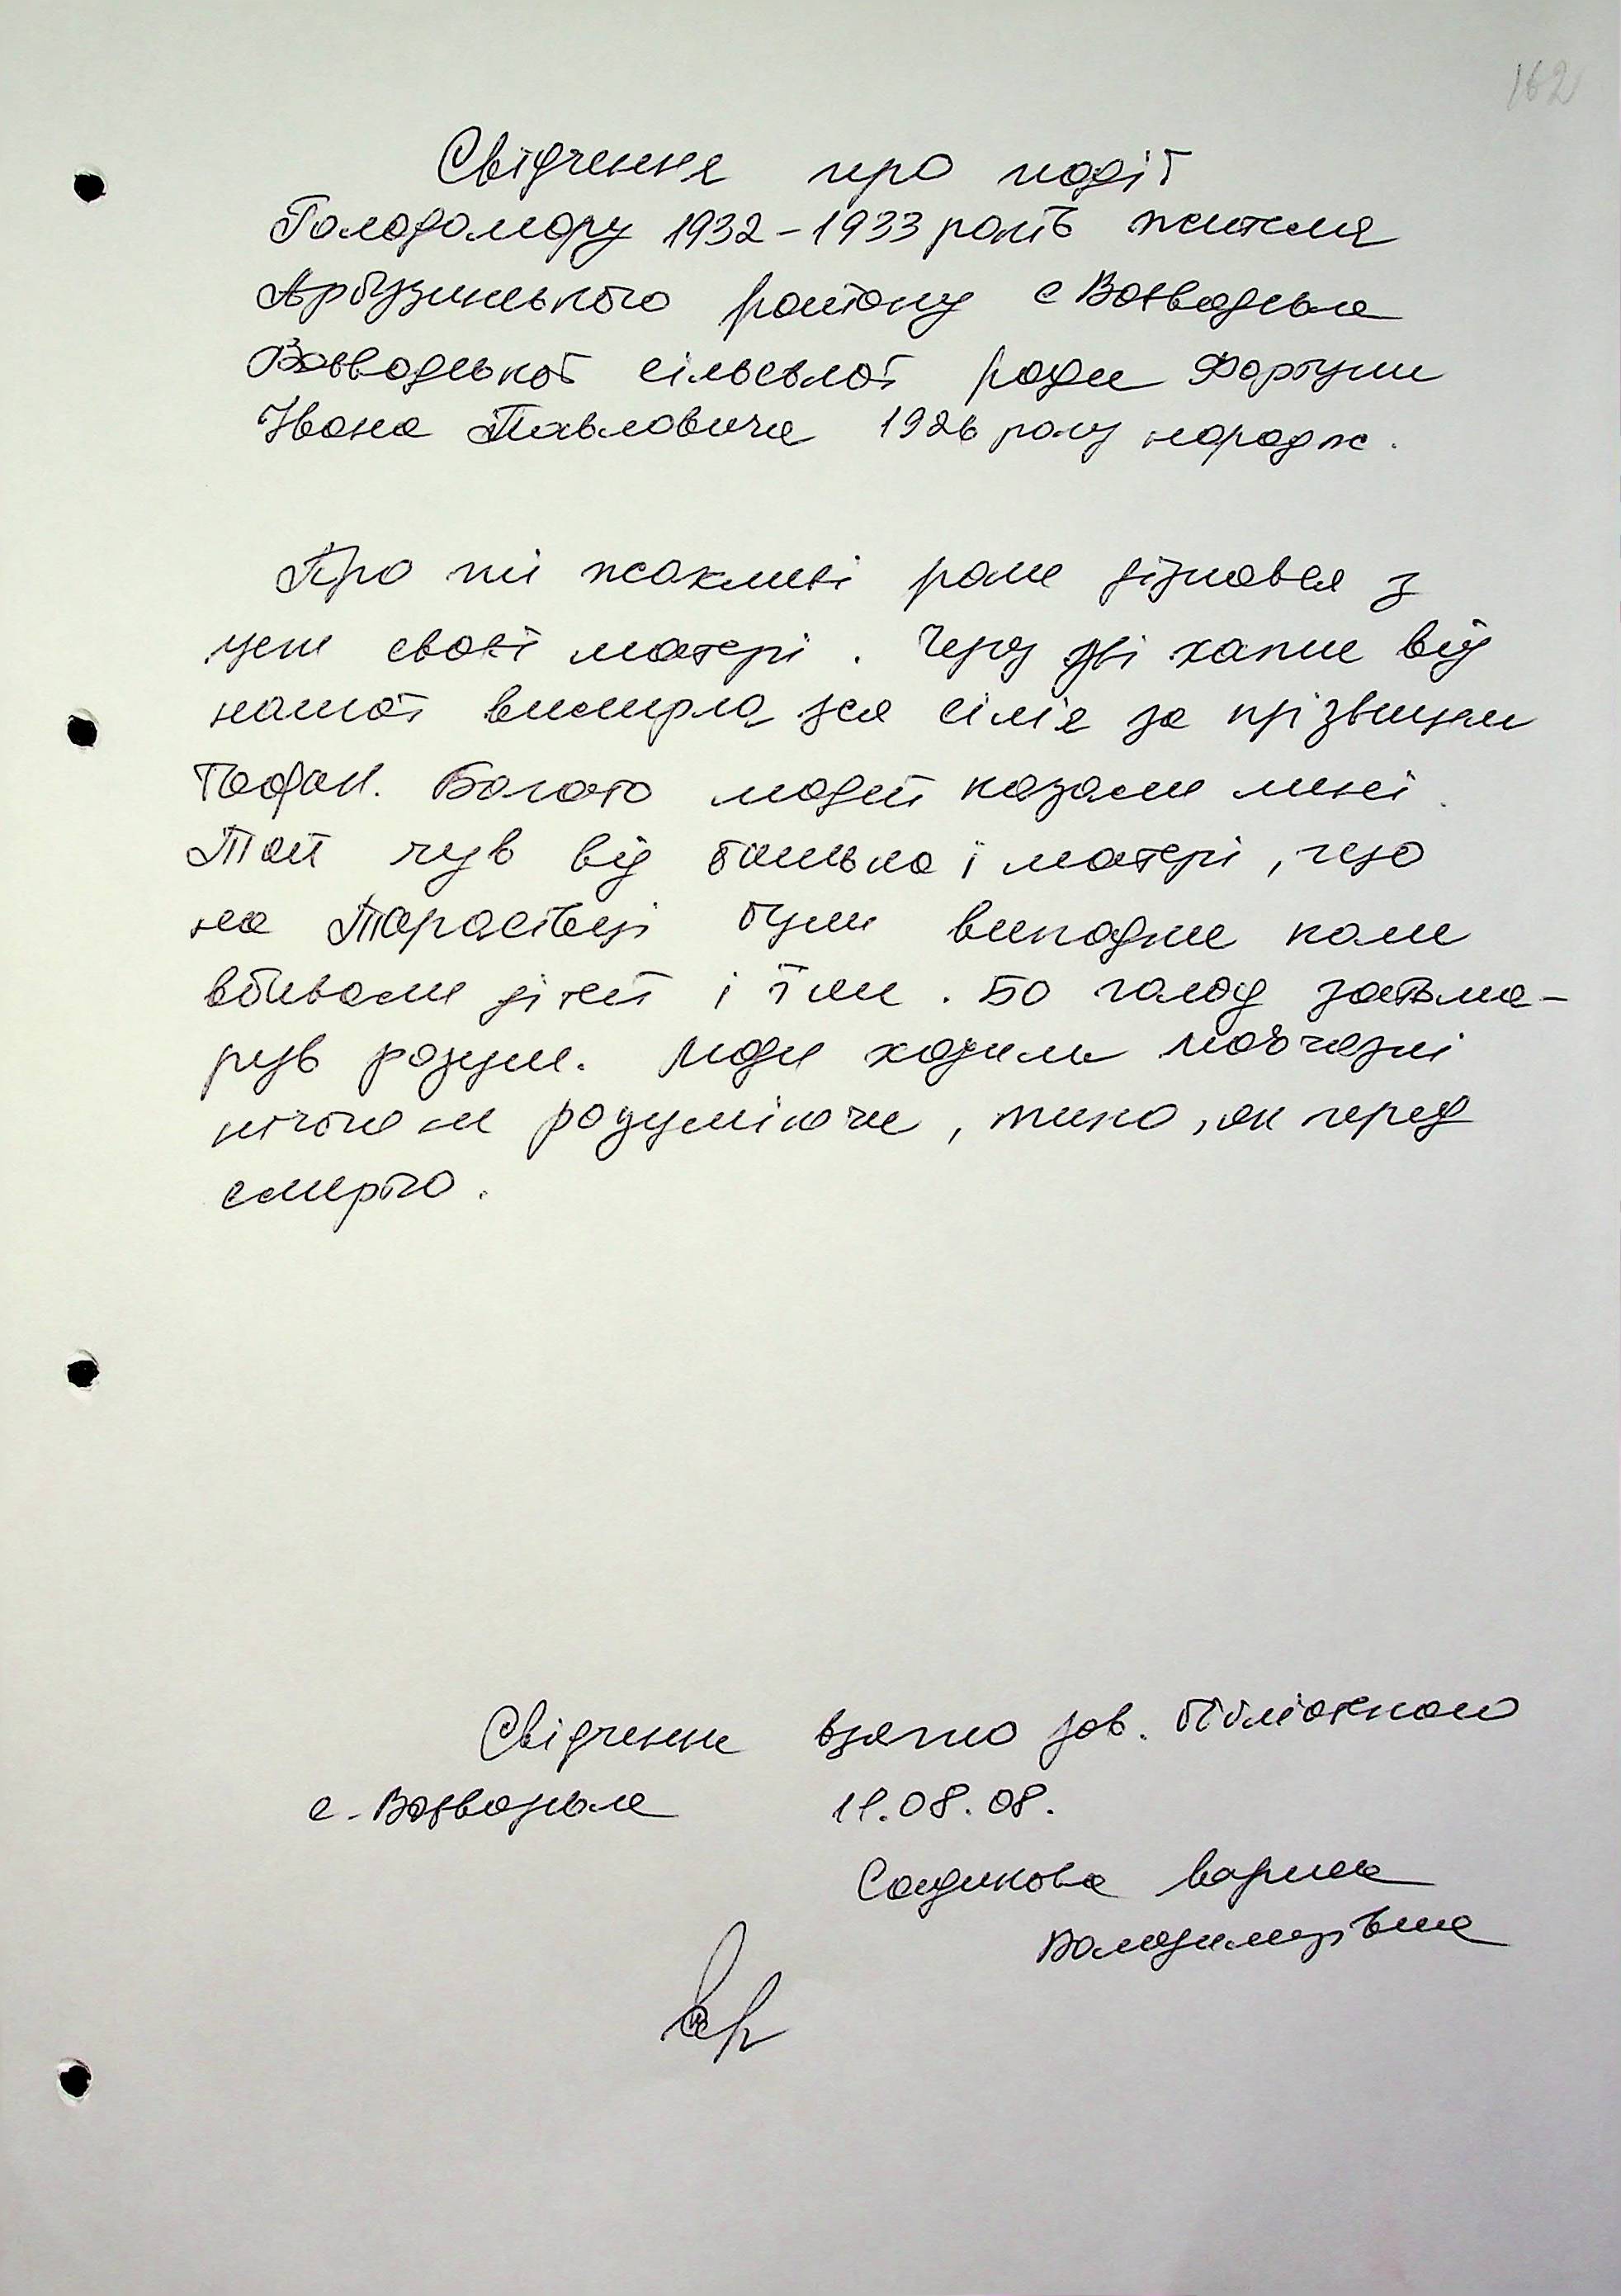 162
Свідчення про події
Голодомору 1932-1933 років жителя
Арбузинського району с Воєводське
Воєводської сільської ради Фортуни
Івана Павловича 1926 року народж.
Про ті жахливі роки дізнався з
уст своєї матері. Через дві хати від
нашої вимерла вся сім'я за прізвищем
Багато людей казали мені.
Той чув від батька і матері, що
на Тарасівці були випадки коли
вбивали дітей і їли. Бо голод затьма-
рув розум. Люди ходили мовчазні
нічого не розуміючи, тихо, як перед
смертю.
Свідчення взято зав. бібліотекою
с. Воєводське 11.08.08.
Садикова Карина
Володимирівна